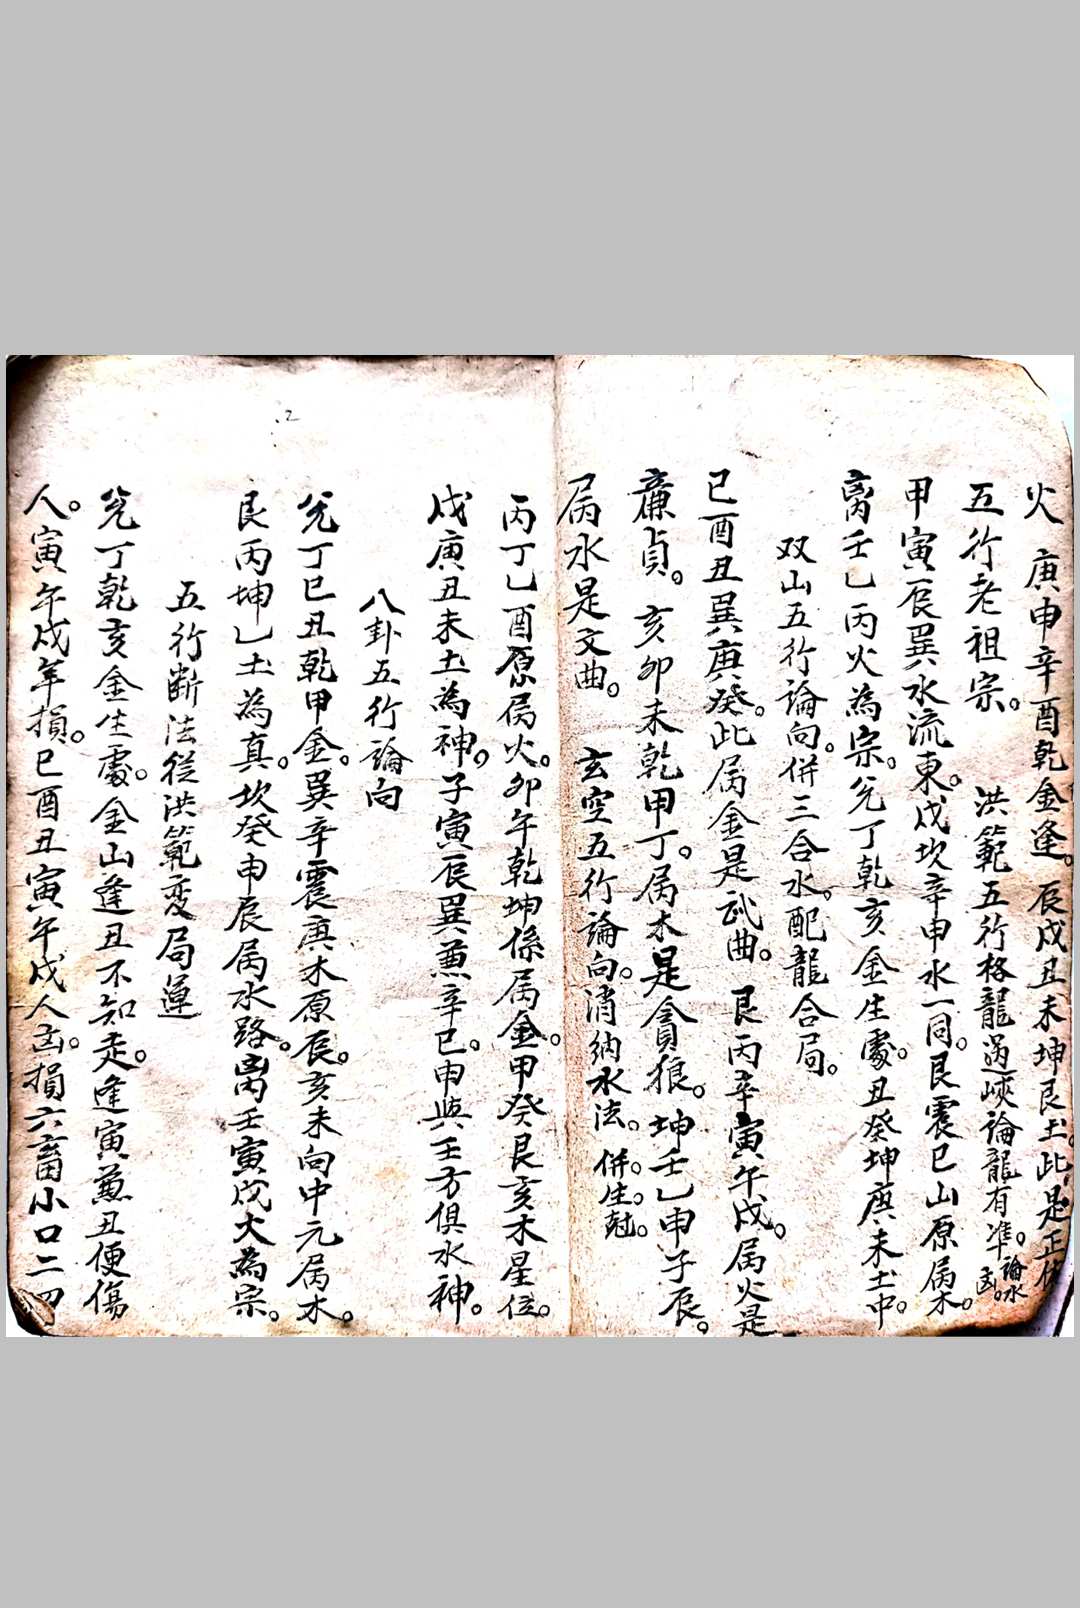 火　庚申辛酉乾金逢。辰戌丑未坤艮土。此是正体
五行老祖宗。　洪範五行格龍過峽論龍有準。論水凶。
甲寅辰巽水流東。戌坎辛申水一同。艮震巳山原属木。
离壬乙丙火為宗。兊丁乾亥金生處。丑癸坤庚未土中。
双山五行論向。併三合水。配龍合局。
巳酉丑巽庚癸。此属金是武曲。艮丙辛寅午戌。属火是
亷貞。亥卯未乾甲丁。属木是貪狼。坤壬乙申子辰。
属水是文曲。　玄空五行論向。消納水法。併。生。尅。
丙丁乙酉原属火。卯午乾坤係属金。甲癸艮亥木星位。
戌庚丑未土為神。子寅辰巽兼辛巳。申與壬方俱水神。
八卦五行論向
兊丁巳丑乾甲金。巽辛震庚木原辰。亥未向中元属木。
艮丙坤乙土為真。坎癸申辰属水路。离壬寅戌火為宗。
五行断法從洪範变局運
兊丁乾亥金生處。金山逢丑不知走。逢寅兼丑便傷
人。寅午戌年損。巳酉丑寅午戌人凶。損六畜小口二四